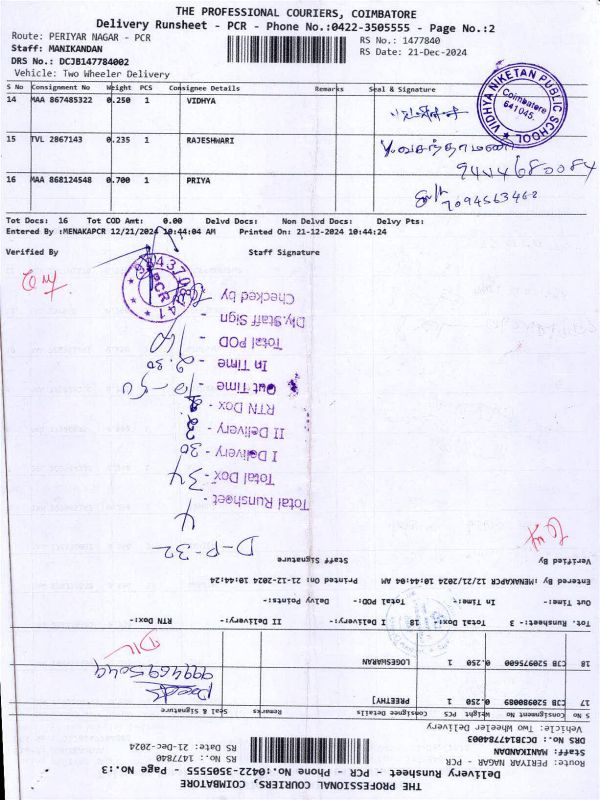 THE PROFESSIONAL COURIERS, COIMBATORE
Delivery Runsheet - PCR - Phone No.:0422-3505555 - Page No.:2
Route: PERIYAR NAGAR - PCR
RS No.: 1477840
Staff: MANIKANDAN
RS Date: 21-Dec-2024
DRS No.: DCJB147784002
Vehicle: Two Wheeler Delivery
S No Consignment No Weight PCS Consignee Details Remarks Seal & Signature
14 MAA 867485322 0.250 1 VIDHYA
VIDHYA NIKETAN PUBLIC SCHOOL
Coimbatore
641045.
15 TVL 2867143 0.235 1 RAJESHWARI
9414680084
16 MAA 868124548 0.700 1 PRIYA
7094563462
Tot Docs: 16 Tot COD Amt: 0.00 Delvd Docs: Non Delvd Docs: Delvy Pts:
Entered By :MENAKAPCR 12/21/2024 10:44:04 AM Printed On: 21-12-2024 10:44:24
Verified By Staff Signature
PCR
Checked by
Dly.Staff Sign -
Total POD -
In Time - 2.30
Out Time - 10-50
RTN Dox - 2
II Delivery - 2
I Delivery - 30
Total Dox - 34
Total Runsheet - 4
D-P-32
THE PROFESSIONAL COURIERS, COIMBATORE
Delivery Runsheet - PCR - Phone No.:0422-3505555 - Page No.:3
Route: PERIYAR NAGAR - PCR
RS No.: 1477840
Staff: MANIKANDAN
RS Date: 21-Dec-2024
DRS No.: DCJB147784003
Vehicle: Two Wheeler Delivery
S No Consignment No Weight PCS Consignee Details Remarks Seal & Signature
17 CJB 52080089 0.250 1 PREETHA]
18 CJB 520975600 0.250 1 LOGESWARAN
9994695049
Tot. Runsheet:- 3 Total Dox:- 18 I Delivery:- II Delivery:- RTN Dox:-
Out Time:- In Time:- Total POD:- Delvy Points:-
Entered By :MENAKAPCR 12/21/2024 10:44:04 AM Printed On: 21-12-2024 10:44:24
Verified By Staff Signature